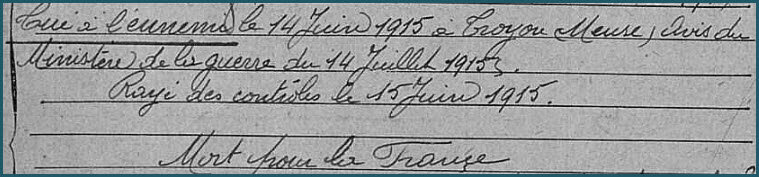 Tué à l'ennemi le 14 Juin 1915 à Troyon Meuse, Avis du
Ministère de la guerre du 14 Juillet 1915.
Rayé des contrôles le 15 Juin 1915.
Mort pour la France